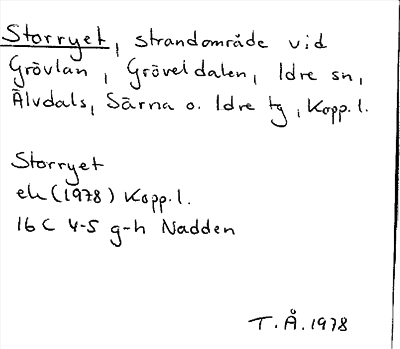 Storryet, strandområde vid
Grövlan, Gröveldalen, Idre sn,
Älvdals, Särna o. Idre tg, Kopp.l.
Storryet
ek (1978) Kopp.l.
16 C 4-5 g-h Nadden
T.Å. 1978